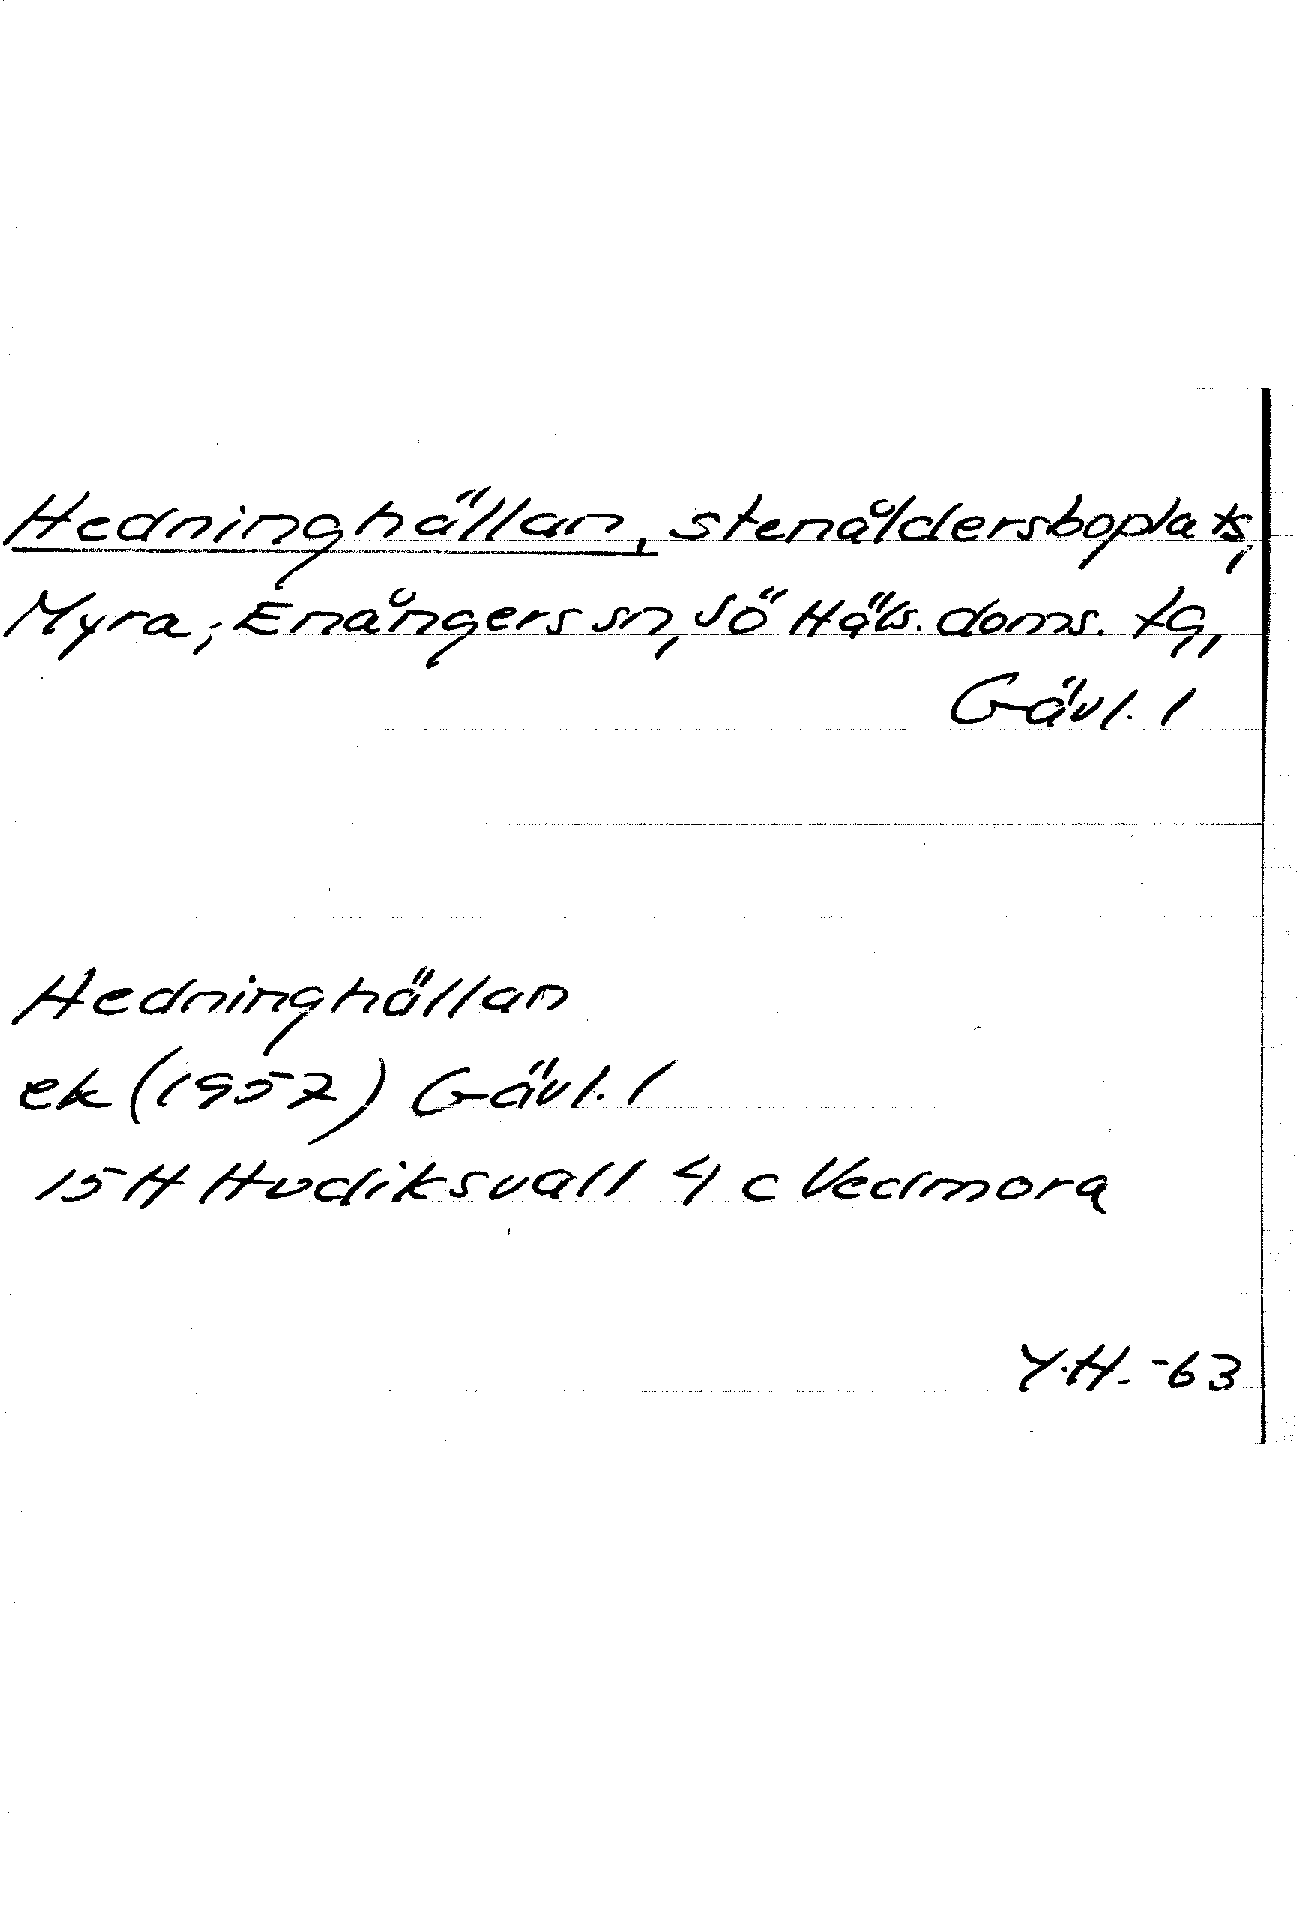 Hedninghällan, stenåldersboplats,
Myra, Enångers sn, Sö Häls. doms. tg,
Gävl. l
Hedninghällan
ek (1957) Gävl. l
15 H Hudiksvall 4 c Vedmora
Y.H. -63